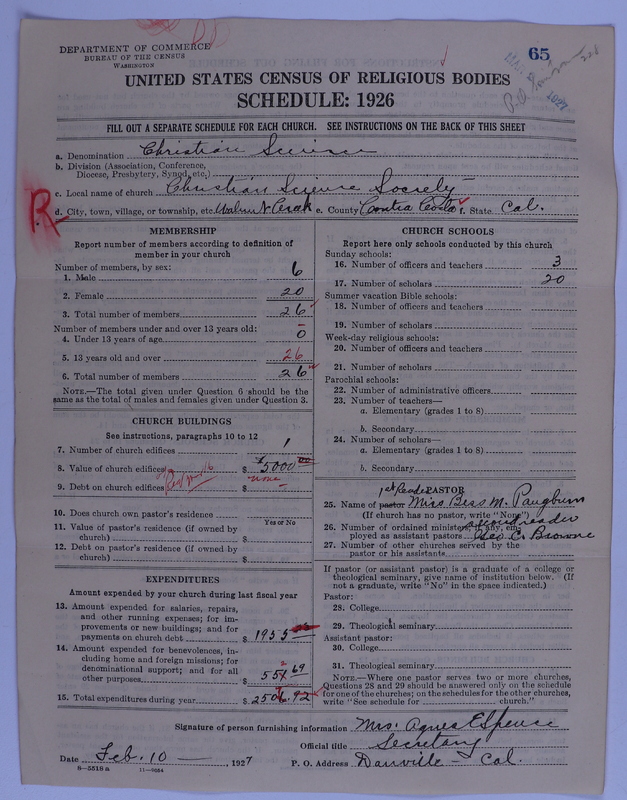 DEPARTMENT OF COMMERCE
BUREAU OF THE CENSUS
WASHINGTON
65
1927
UNITED STATES CENSUS OF RELIGIOUS BODIES
SCHEDULE: 1926
FILL OUT A SEPARATE SCHEDULE FOR EACH CHURCH. SEE INSTRUCTIONS ON THE BACK OF THIS SHEET
a. Denomination Christian Science
b. Division (Association, Conference,
Diocese, Presbytery, Synod, etc.)
c. Local name of church Christian Science Society
R
d. City, town, village, or township, etc. Walnut Creek e. County Contra Costa f. State Cal.
MEMBERSHIP
Report number of members according to definition of
member in your church
Number of members, by sex:
1. Male 6
2. Female 20
3. Total number of members 26
Number of members under and over 13 years old:
4. Under 13 years of age 0
5. 13 years old and over 26
6. Total number of members 26
NOTE.—The total given under Question 6 should be the
same as the total of males and females given under Question 3.
CHURCH BUILDINGS
See instructions, paragraphs 10 to 12
7. Number of church edifices 1
8. Value of church edifices $ 5000
9. Debt on church edifices $ none
10. Does church own pastor's residence
Yes or No
11. Value of pastor's residence (if owned by
church) $
12. Debt on pastor's residence (if owned by
church) $
EXPENDITURES
Amount expended by your church during last fiscal year
13. Amount expended for salaries, repairs,
and other running expenses; for im-
provements or new buildings; and for
payments on church debt $ 1955
14. Amount expended for benevolences, in-
cluding home and foreign missions; for
denominational support; and for all
other purposes $ 69
15. Total expenditures during year $ 92
CHURCH SCHOOLS
Report here only schools conducted by this church
Sunday schools:
16. Number of officers and teachers 3
17. Number of scholars 20
Summer vacation Bible schools:
18. Number of officers and teachers
19. Number of scholars
Week-day religious schools:
20. Number of officers and teachers
21. Number of scholars
Parochial schools:
22. Number of administrative officers
23. Number of teachers—
a. Elementary (grades 1 to 8)
b. Secondary
24. Number of scholars—
a. Elementary (grades 1 to 8)
b. Secondary
PASTOR
1st Reader
25. Name of pastor Miss Bess M. Pangburn
(If church has no pastor, write "None")
second reader
26. Number of ordained ministers, if any, em-
ployed as assistant pastors Geo. C. Browne
27. Number of other churches served by the
pastor or his assistants
If pastor (or assistant pastor) is a graduate of a college or
theological seminary, give name of institution below. (If
not a graduate, write "No" in the space indicated.)
Pastor:
28. College
29. Theological seminary
Assistant pastor:
30. College
31. Theological seminary
NOTE.—Where one pastor serves two or more churches,
Questions 28 and 29 should be answered only on the schedule
for one of the churches; on the schedules for the other churches,
write "See schedule for church."
Signature of person furnishing information Mrs. Agnes E Spence
Official title Secretary
Date Feb. 10 — , 1927 P. O. Address Danville — Cal.
8—5518 a 11—9054